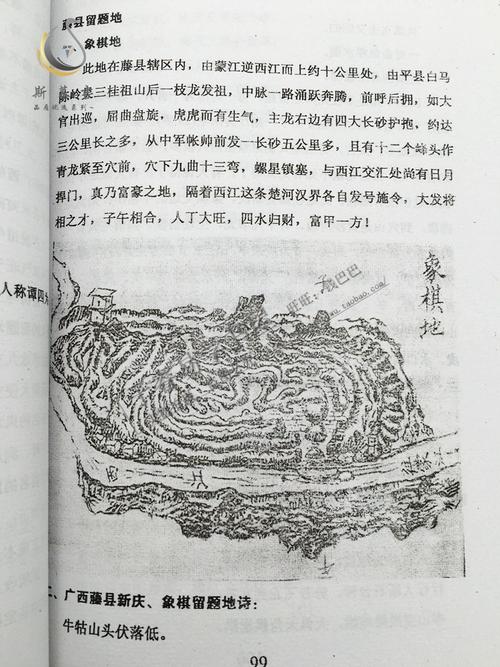 藤县留题地
、象棋地
此地在藤县辖区内，由蒙江逆西江而上约十公里处，由平县白马
岭尝三挂祖山后一枝龙发祖，中脉一路涌跃奔腾，前呼后拥，如大
官出巡，屈曲盘旋，虎虎而有生气，主龙右边有四大长砂护抱，约达
三公里长之多，从中军帐帅前发一长砂五公里多，且有十二个峰头作
青龙紧至穴前，穴下九曲十三弯，螺星镇塞，与西江交汇处尚有日月
捍门，真乃富豪之地，隔着西江这条楚河汉界各自发号施令，大发将
相之才，子午相合，人丁大旺，四水归财，富甲一方！
人称谭四
象棋地
子
旺旺：钱巴巴
.taobao.com
西
江
二、广西藤县新庆、象棋留题地诗：
牛牯山头伏落低。
99